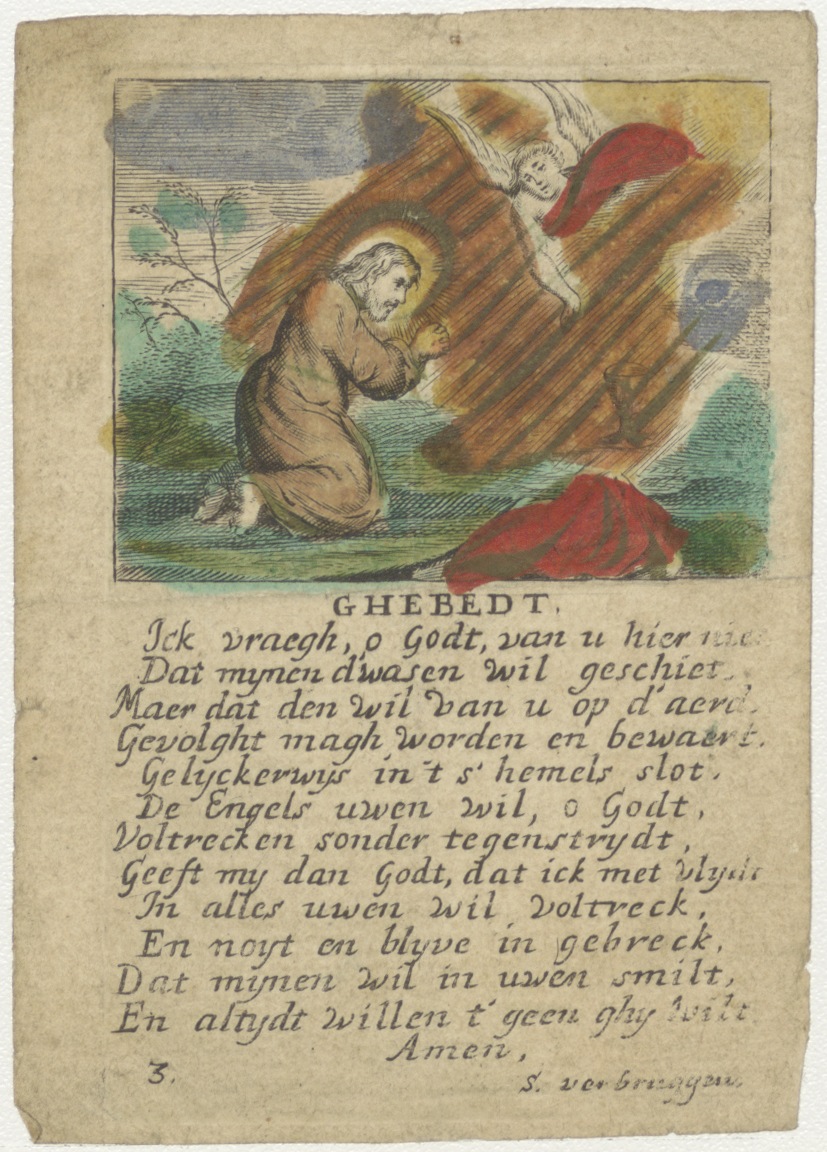 GHEBEDT.
Ick vraegh, o Godt, van u hier niet
Dat mynen dwasen wil geschiet.
Maer dat den wil van u op d'aerd.
Gevolght magh worden en bewaert.
Gelyckerwijs in't s'hemels slot.
De Engels uwen wil, o Godt,
Voltrecken sonder tegenstrydt,
Geeft my dan Godt, dat ick met vlydt
In alles uwen wil voltreck,
En noyt en blyve in gebreck,
Dat mynen wil in uwen smilt,
En altydt willen t'geen ghy wilt
Amen,
3.
s. verbruggen.